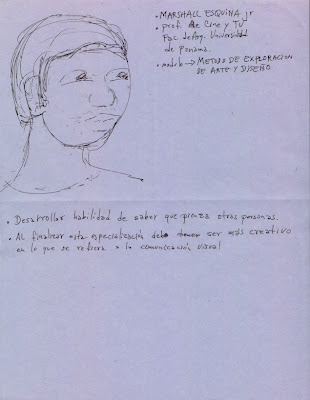 • MARSHALL ESQUINA jr
• prof. de Cine y TV
Fac. de Arq. Universidad
de Panamá.
• modulo → METODO DE EXPLORACION
DE ARTE Y DISEÑO
• Desarrollar habilidad de saber que piensa otras personas.
• Al finalizar esta especialización debo tener ser más creativo
en lo que se refiera a la comunicación visual